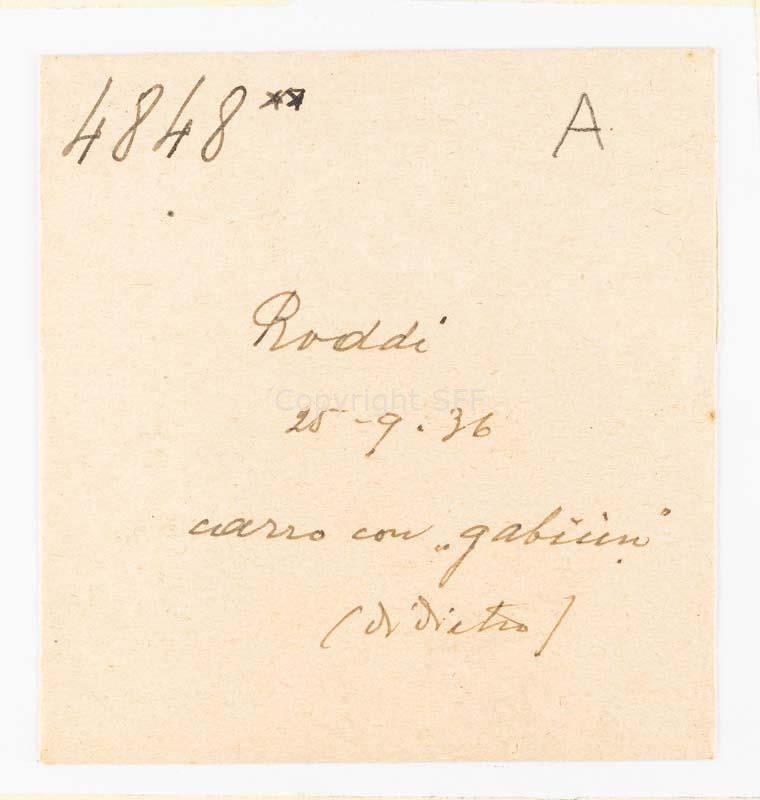 4848** A
Roddi
Copyright SFF
25-9.36
carro con „gabiüin”
(di dietro)